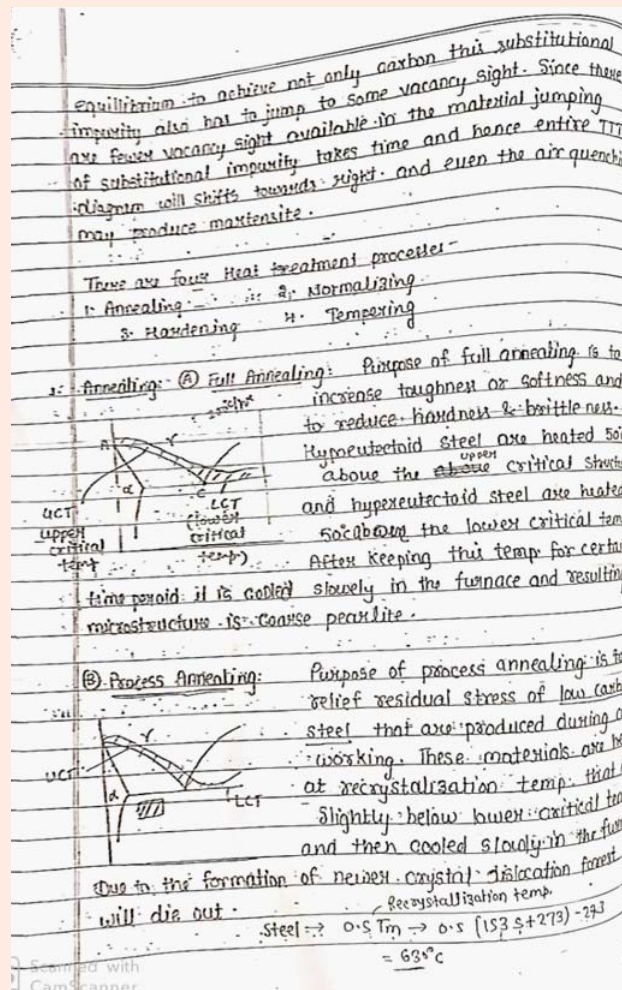 equillibrium to achieve not only carbon this substitutional
impurity also has to jump to some vacancy sight. Since there
are fewer vacancy sight available in the material jumping
of substitutional impurity takes time and hence entire TTT
diagram will shifts towards right. and even the air quenchi
may produce martensite.
There are four Heat treatment processes -
1. Annealing 2. Normalizing
3. Hardening 4. Tempering
1: Annealing: Ⓐ Full Annealing: Purpose of full annealing is to
increase toughness or softness and
to reduce hardness & brittleness.
Hypoeutectoid steel are heated 50°
above the above upper critical
and hypereutectoid steel are heated
50°C above the lower critical tem
After keeping this temp for certai
time peroid it is cooled slowely in the furnace and resulting
microstructure is coarse pearlite.
A
γ
α
C
UCT
upper
critical
temp
LCT
(lower
critical
temp)
Ⓑ Process Annealing: Purpose of process annealing is to
relief residual stress of low carb
steel that are produced during c
working. These materials are he
at recrystalization temp. that
slightly below lower critical tem
and then cooled slowly in the furn
γ
UCT
α
LCT
Due to the formation of newer crystal dislocation forest
will die out.
Recrystallization temp.
Steel → 0.5 Tm → 0.5 (1535+273) - 273
= 630°C
Scanned with
CamScanner